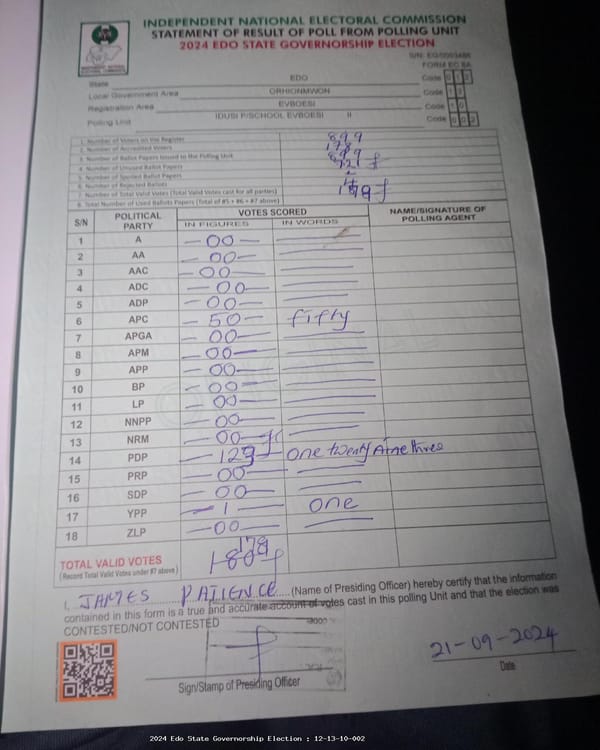 INDEPENDENT NATIONAL ELECTORAL COMMISSION
STATEMENT OF RESULT OF POLL FROM POLLING UNIT
2024 EDO STATE GOVERNORSHIP ELECTION
FORM EC 8A
State EDO Code
Local Government Area ORHIONMWON Code
Registration Area EVBOESI Code
Polling Unit IDUSI P/SCHOOL EVBOESI II Code
1. Number of Voters on the Register 899
2. Number of Accredited Voters
3. Number of Ballot Papers Issued to the Polling Unit
4. Number of Unused Ballot Papers
5. Number of Spoiled Ballot Papers
6. Number of Rejected Ballots
7. Number of Total Valid Votes (Total Valid Votes cast for all parties)
8. Total Number of Used Ballots Papers (Total of #5 + #6 + #7 above)
S/N POLITICAL PARTY VOTES SCORED NAME/SIGNATURE OF POLLING AGENT
IN FIGURES IN WORDS
1 A 00
2 AA 00
3 AAC 00
4 ADC 00
5 ADP 00
6 APC 50 fifty
7 APGA 00
8 APM 00
9 APP 00
10 BP 00
11 LP 00
12 NNPP 00
13 NRM 00
14 PDP one twenty
15 PRP 00
16 SDP 00
17 YPP 1 one
18 ZLP 00
TOTAL VALID VOTES
(Record Total Valid Votes under #7 above)
I, JAMES PATIENCE (Name of Presiding Officer) hereby certify that the information
contained in this form is a true and accurate account of votes cast in this polling Unit and that the election was
CONTESTED/NOT CONTESTED
21-09-2024
Sign/Stamp of Presiding Officer
Date
2024 Edo State Governorship Election : 12-13-10-002